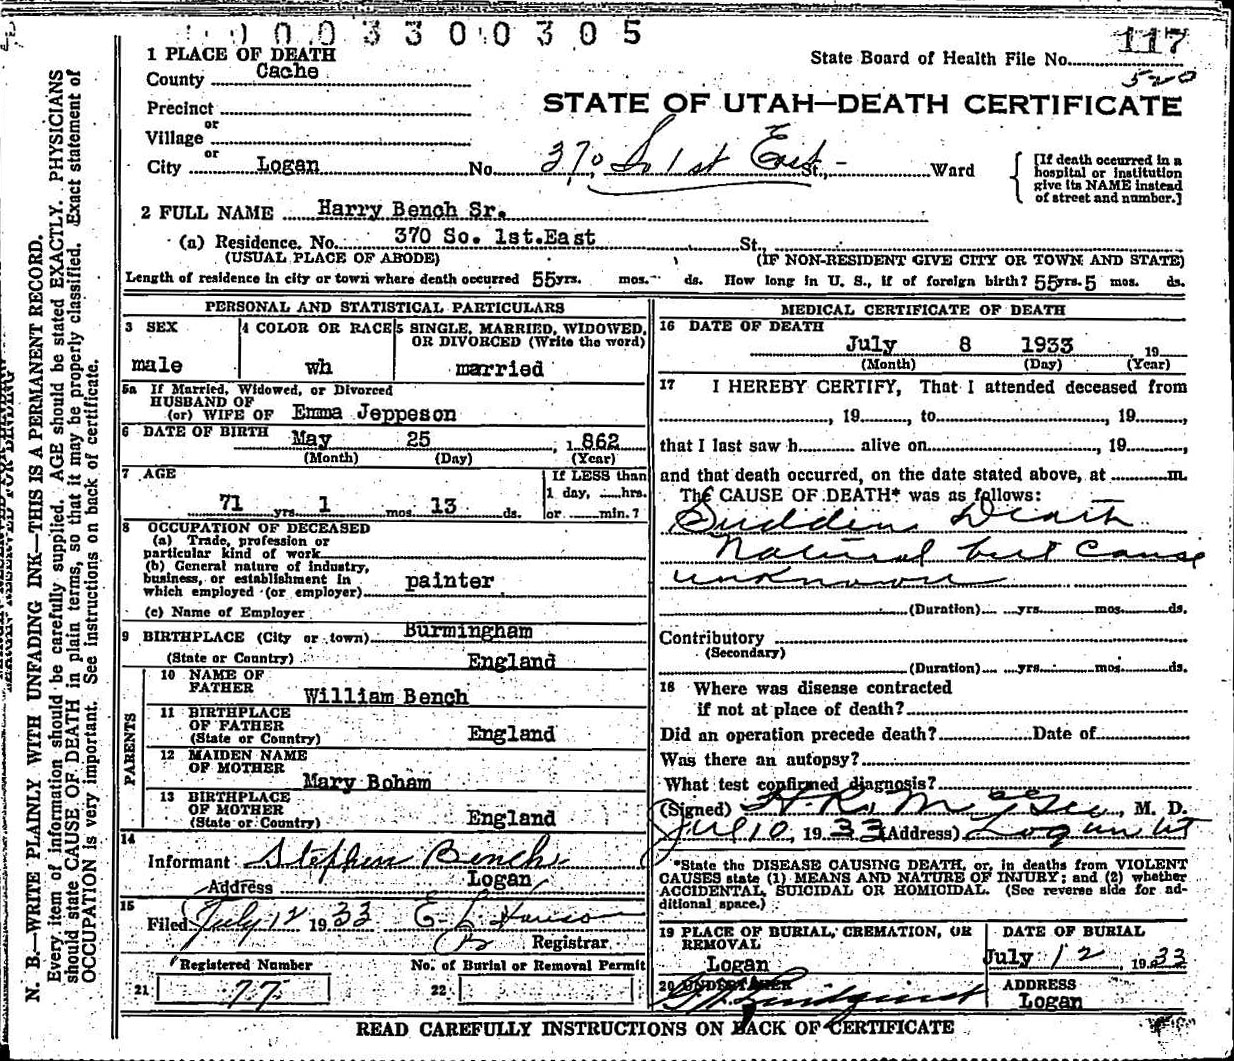 0 0 0 3 3 0 0 3 0 5
117
State Board of Health File No.
520
1 PLACE OF DEATH
County Cache
STATE OF UTAH—DEATH CERTIFICATE
Precinct
or
Village
or
City Logan No. 370 So 1st East St., - Ward
[If death occurred in a
hospital or institution
give its NAME instead
of street and number.]
2 FULL NAME Harry Bench Sr.
(a) Residence. No. 370 So. 1st.East St.
(USUAL PLACE OF ABODE) (IF NON-RESIDENT GIVE CITY OR TOWN AND STATE)
Length of residence in city or town where death occurred 55yrs. mos. ds. How long in U. S., if of foreign birth? 55yrs. 5 mos. ds.
PERSONAL AND STATISTICAL PARTICULARS
3 SEX
male
4 COLOR OR RACE
wh
5 SINGLE, MARRIED, WIDOWED,
OR DIVORCED (Write the word)
married
5a If Married, Widowed, or Divorced
HUSBAND OF
(or) WIFE OF Emma Jeppeson
6 DATE OF BIRTH May 25, 1862
(Month) (Day) (Year)
7 AGE
71 yrs. 1 mos. 13 ds.
If LESS than
1 day, ......hrs.
or ......min.?
8 OCCUPATION OF DECEASED
(a) Trade, profession or
particular kind of work
(b) General nature of industry,
business, or establishment in
which employed (or employer) painter
(c) Name of Employer
9 BIRTHPLACE (City or town) Burmingham
(State or Country) England
PARENTS
10 NAME OF
FATHER William Bench
11 BIRTHPLACE
OF FATHER
(State or Country) England
12 MAIDEN NAME
OF MOTHER
Mary Boham
13 BIRTHPLACE
OF MOTHER
(State or Country) England
14
Informant Stephen Bench
Address Logan
15
Filed July 12 1933 E. L. Hanson
Registrar
Registered Number No. of Burial or Removal Permit
21 77 22
MEDICAL CERTIFICATE OF DEATH
16 DATE OF DEATH
July 8 1933 19
(Month) (Day) (Year)
17 I HEREBY CERTIFY, That I attended deceased from
, 19 , to , 19 ,
that I last saw h alive on , 19 ,
and that death occurred, on the date stated above, at m.
The CAUSE OF DEATH* was as follows:
Sudden Death
Natural but Cause
unknown
(Duration) yrs. mos. ds.
Contributory
(Secondary)
(Duration) yrs. mos. ds.
18 Where was disease contracted
if not at place of death?
Did an operation precede death? Date of
Was there an autopsy?
What test confirmed diagnosis?
(Signed) M. D.
Jul 10, 1933 (Address) Logan Ut
*State the DISEASE CAUSING DEATH, or, in deaths from VIOLENT
CAUSES state (1) MEANS AND NATURE OF INJURY; and (2) whether
ACCIDENTAL, SUICIDAL OR HOMICIDAL. (See reverse side for ad-
ditional space.)
19 PLACE OF BURIAL, CREMATION, OR
REMOVAL
Logan
DATE OF BURIAL
July 12, 1933
20 UNDERTAKER
Lindquist
ADDRESS
Logan
READ CAREFULLY INSTRUCTIONS ON BACK OF CERTIFICATE
N. B.—WRITE PLAINLY WITH UNFADING INK—THIS IS A PERMANENT RECORD.
Every item of information should be carefully supplied. AGE should be stated EXACTLY. PHYSICIANS
should state CAUSE OF DEATH in plain terms, so that it may be properly classified. Exact statement of
OCCUPATION is very important. See instructions on back of certificate.